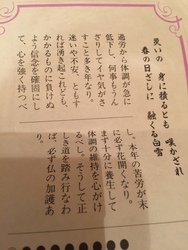 災いの 身に積るとも 嘆かざれ
春の日ざしに 融くる白雪
過労から体調が急に
低下し、何事もうん
ざりしてイヤ気がさ
すこと多き年なり。
迷いや不安、ともす
れば湧き起これども、
かかるものに負けぬ
よう信念を確固にし
て、心を強く持つべ
し。本年の苦労が末
に必ず花開くなり。
まず十分に養生して
体調の維持を心がけ
るべし。そうして正
しき道を踏み行なわ
ば、必ず仏の加護あ
り。